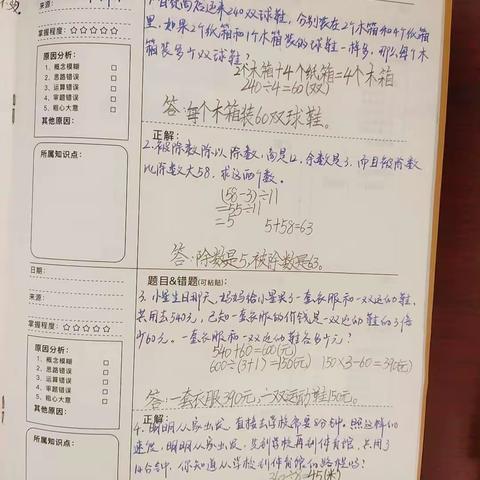 来源：
掌握程度：☆☆☆☆☆
原因分析：
1、概念模糊 □
2、思路错误 □
3、运算错误 □
4、审题错误 □
5、粗心大意 □
其他原因：
所属知识点：
240双球鞋，分别装在2个木箱和4个纸箱
里，如果2个纸箱和1个木箱装的球鞋一样多，那么每个木
箱装多少双球鞋？
2个木箱+4个纸箱=4个木箱
240÷4=60(双)
答：每个木箱装60双球鞋。
正解：
2.被除数除以除数，商是12，余数是3，而且被除数
比除数大58，求这两个数。
(58-3)÷11
=55÷11
=5 5+58=63
答：除数是5，被除数是63。
日期：
来源：
掌握程度：☆☆☆☆☆
原因分析：
1、概念模糊 □
2、思路错误 □
3、运算错误 □
4、审题错误 □
5、粗心大意 □
其他原因：
所属知识点：
题目&错题(可粘贴)：
3.小星生日那天，妈妈给小星买了一套衣服和一双运动鞋，
共用去540元，已知一套衣服的价钱是一双运动鞋的3倍
少60元。一套衣服和一双运动鞋各多少元？
540+60=600(元)
600÷(3+1)=150(元) 150×3-60=390(元)
答：一套衣服390元，一双运动鞋150元。
正解：
4.明明从家出发，直接去学校需要8分钟。照这样的
速度，明明从家出发，先到学校再到体育馆，共用
14分钟，你知道从学校到体育馆的路程吗？
360÷8=45(米)